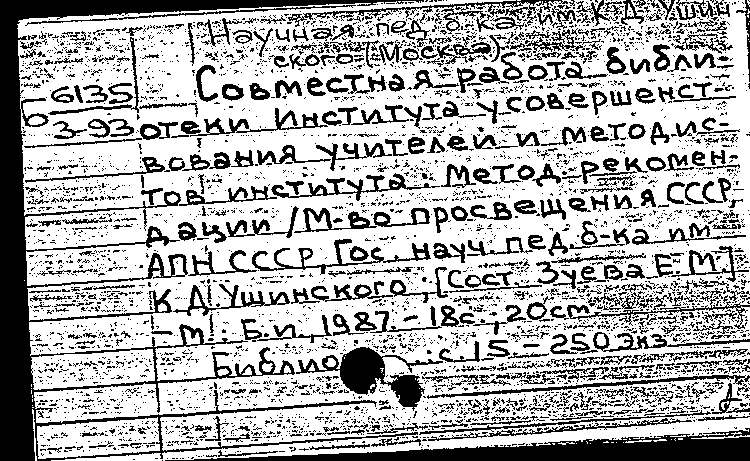 Научная пед б-ка им К Д Ушин-
ского (Москва)
Б-6135
3-93
Совместная работа библи-
отеки Института усовершенст-
вования учителей и методис-
тов института: Метод. рекомен-
дации / М-во просвещения СССР,
АПН СССР, Гос. науч. пед. б-ка им
К.Д. Ушинского; [Сост. Зуева Е.М.]
-М.: Б.и., 1987. - 18с.; 20см.
: с. 15 - 250 экз.